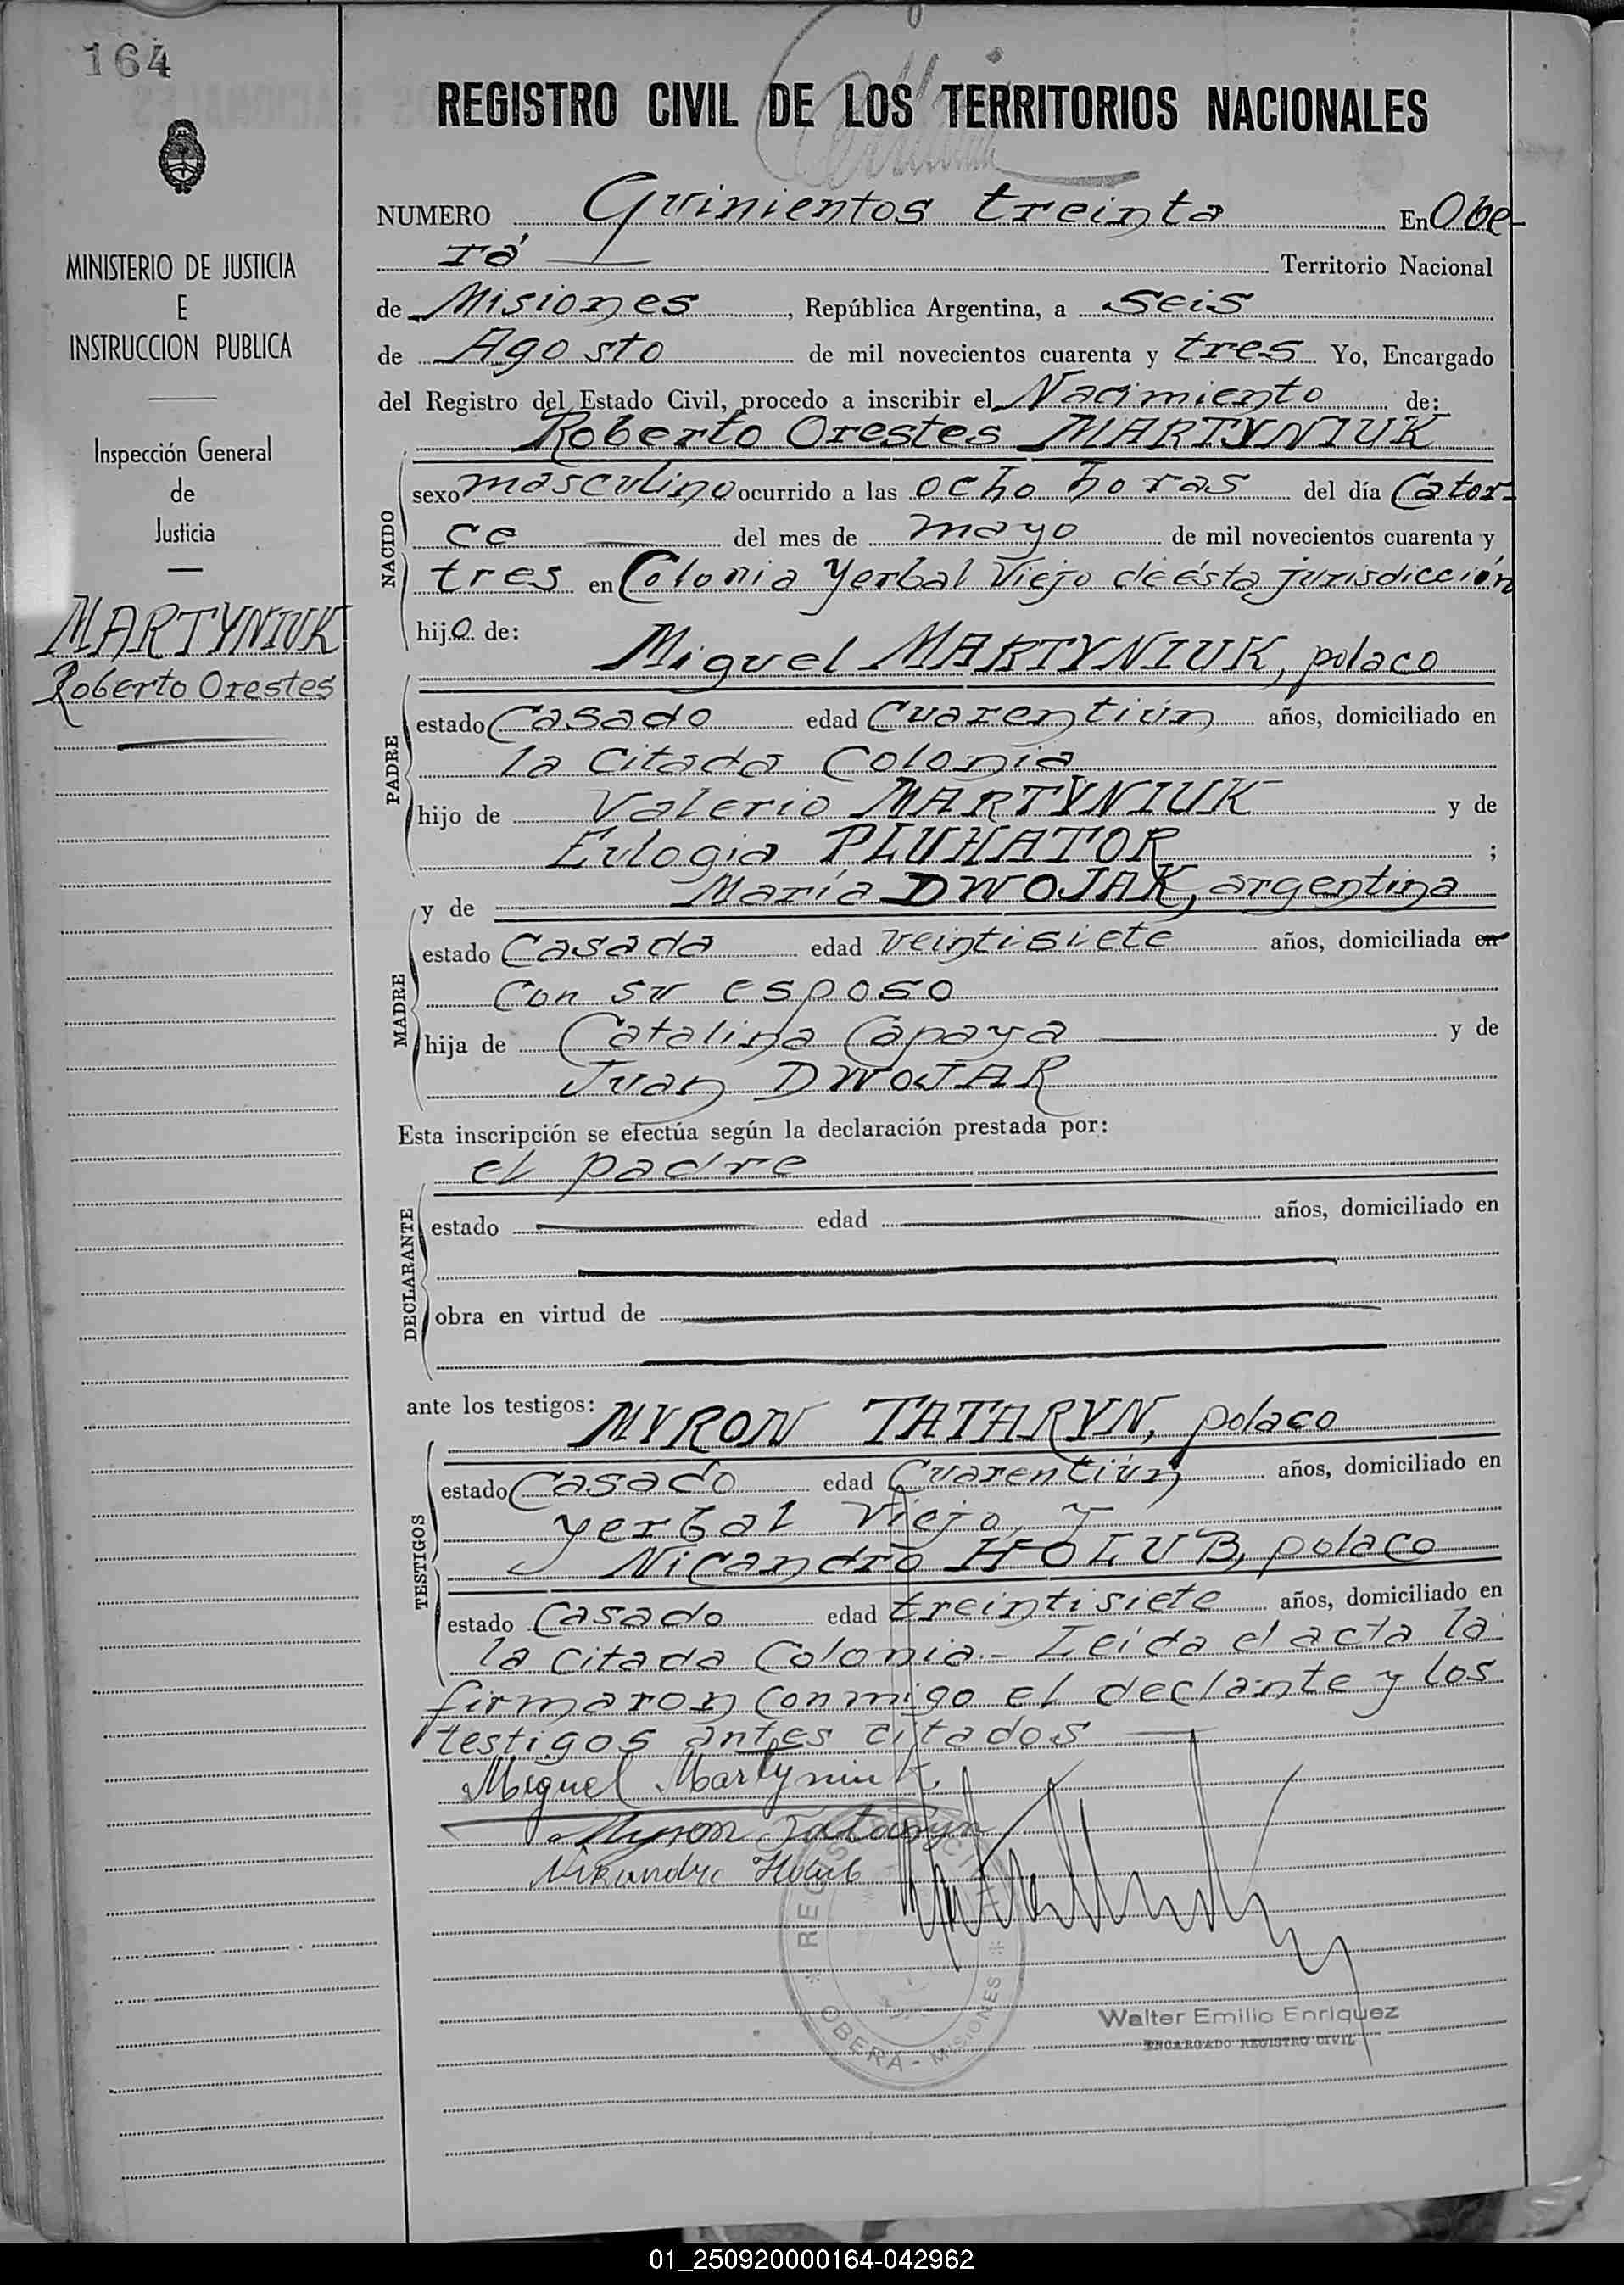 164
MINISTERIO DE JUSTICIA
E
INSTRUCCION PUBLICA
Inspección General
de
Justicia
MARTYNIUK
Roberto Orestes
REGISTRO CIVIL DE LOS TERRITORIOS NACIONALES
NUMERO Quinientos treinta En Obe-
rá Territorio Nacional
de Misiones, República Argentina, a Seis
de Agosto de mil novecientos cuarenta y tres Yo, Encargado
del Registro del Estado Civil, procedo a inscribir el Nacimiento de:
Roberto Orestes MARTYNIUK
NACIDO
sexo masculino ocurrido a las ocho horas del día Cator-
ce del mes de mayo de mil novecientos cuarenta y
tres en Colonia Yerbal Viejo de ésta jurisdicción
hijo de:
Miguel MARTYNIUK, polaco
PADRE
estado Casado edad Cuarentiún años, domiciliado en
la citada Colonia
hijo de Valerio MARTYNIUK y de
Eulogia PLUHATOR ;
y de María DWOJAK, argentina
MADRE
estado Casada edad veintisiete años, domiciliada en
Con su esposo
hija de Catalina Capaya y de
Juan DWOJAR
Esta inscripción se efectúa según la declaración prestada por:
el padre
DECLARANTE
estado edad años, domiciliado en
obra en virtud de
ante los testigos:
MYRON TATARYN, polaco
TESTIGOS
estado Casado edad Cuarentiún años, domiciliado en
yerbal Viejo y
Nicandro HOLUB, polaco
estado Casado edad treintisiete años, domiciliado en
la citada Colonia.- Leida el acta la
firmaron conmigo el declante y los
testigos antes citados
Miguel Martyniuk
Myron Tataryn
Nikandre Holub
REGIS
OBERÁ - MISIONES
Walter Emilio Enriquez
ENCARGADO REGISTRO CIVIL
01_250920000164-042962